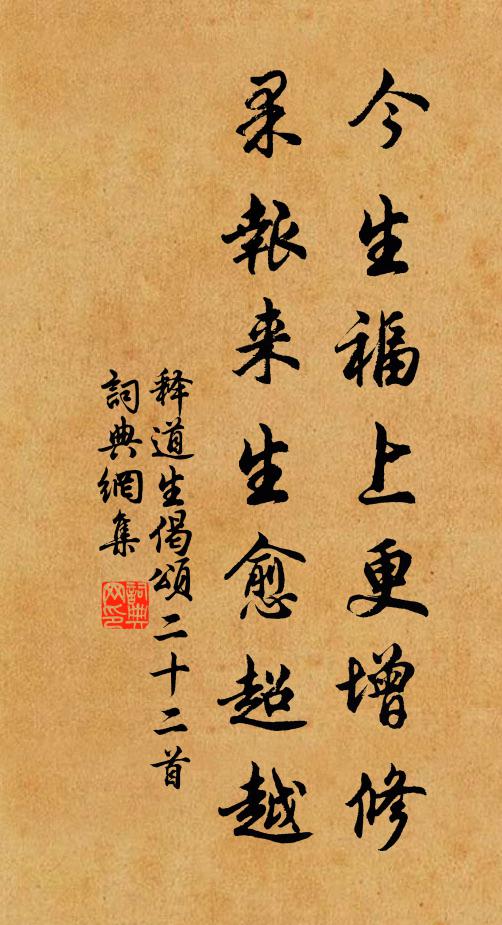 今生福上更增修
果報来生愈超越
释道生偈頌二十二首
詞典網集
詞典网印